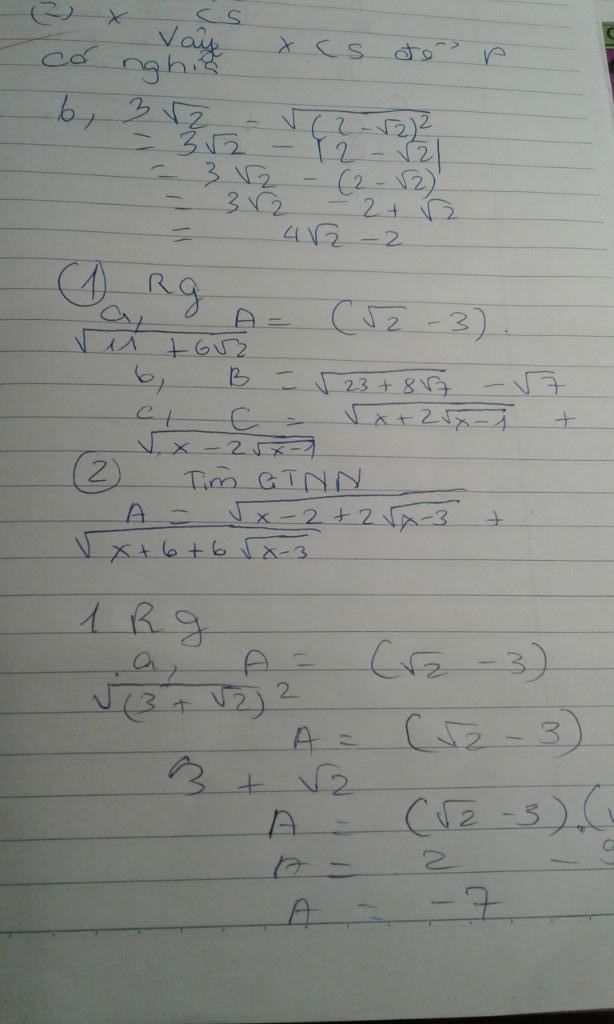 x ≤ 5
Vậy x ≤ 5 để P
có nghĩa
b, 3√2 - √(2-√2)²
= 3√2 - |2 - √2|
= 3√2 - (2-√2)
= 3√2 - 2 + √2
= 4√2 - 2
① Rg
a, A = (√2 - 3).
√11 + 6√2
b, B = √23 + 8√7 - √7
c, C = √x + 2√x-1 +
√x - 2√x-1
② Tìm GTNN
A = √x-2+2√x-3 +
√x+6+6√x-3
1 Rg
a, A = (√2 - 3)
√(3 + √2)²
A = (√2 - 3)
3 + √2
A = (√2 - 3).(
A = 2 - 9
A = -7